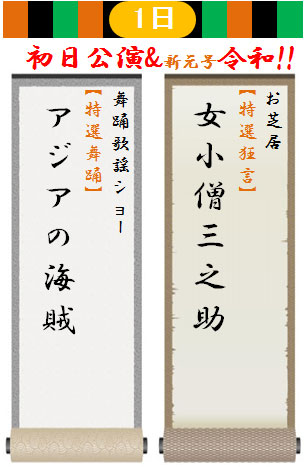 1日
初日公演&新元号令和!!
お芝居
【特選狂言】
女小僧三之助
舞踊歌謡ショー
【特選舞踊】
アジアの海賊